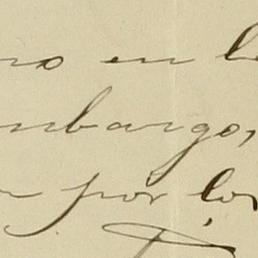 no en l
mbargo,
por los